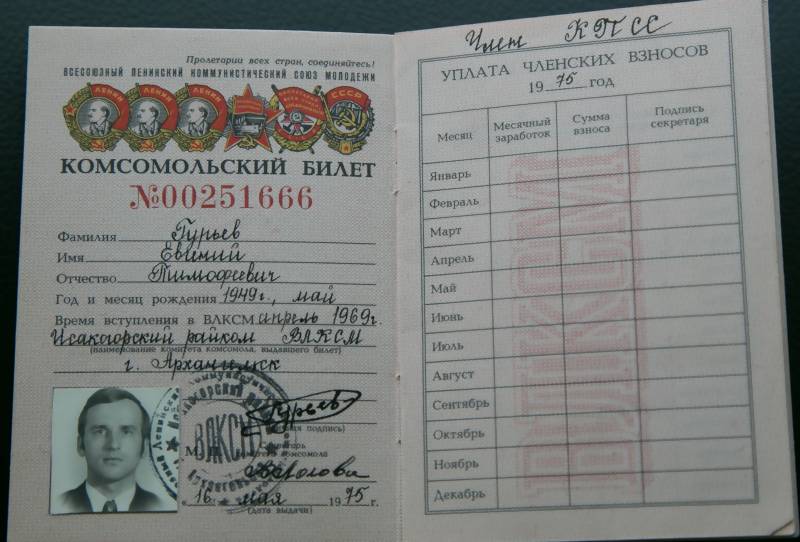 Пролетарии всех стран, соединяйтесь!
ВСЕСОЮЗНЫЙ ЛЕНИНСКИЙ КОММУНИСТИЧЕСКИЙ СОЮЗ МОЛОДЕЖИ
ЛЕНИН ЛЕНИН ЛЕНИН СССР
КОМСОМОЛЬСКИЙ БИЛЕТ
№00251666
Фамилия Гурьев
Имя Евгений
Отчество Тимофеевич
Год и месяц рождения 1949г., май
Время вступления в ВЛКСМ апрель 1969г.
Исакогорский райком ВЛКСМ
(наименование комитета комсомола, выдавшего билет)
г. Архангельск
ВЛКСМ
Гурьев
подпись)
М.
Секретарь
комитета комсомола
16 мая 1975г.
(дата выдачи)
Член КПСС
УПЛАТА ЧЛЕНСКИХ ВЗНОСОВ
1975 год
Месяц Месячный заработок Сумма взноса Подпись секретаря
Январь
Февраль
Март
Апрель
Май
Июнь
Июль
Август
Сентябрь
Октябрь
Ноябрь
Декабрь
ВЛКСМ